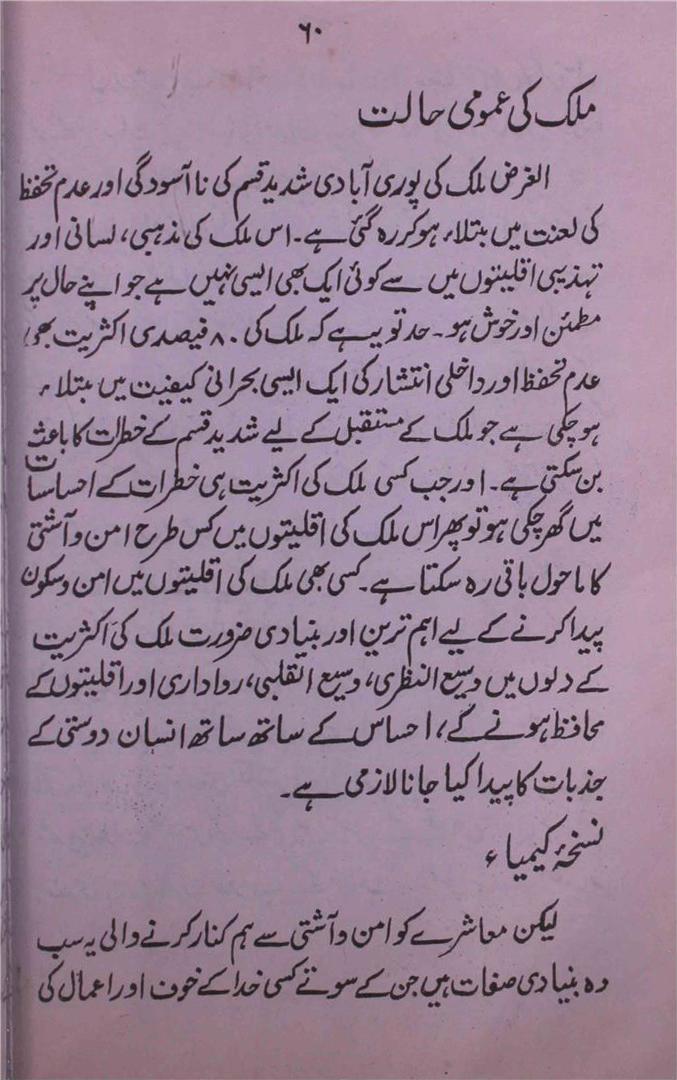 ۶۰
ملک کی عمومی حالت
الغرض ملک کی پوری آبادی شدید قسم کی ناآسودگی اور عدم تحفظ
کی لعنت میں مبتلاء ہوکر رہ گئی ہے۔ اس ملک کی مذہبی، لسانی اور
تہذیبی اقلیتوں میں سے کوئی ایک بھی ایسی نہیں ہے جو اپنے حال پر
مطمئن اور خوش ہو۔ حد تو یہ ہے کہ ملک کی ۸۰ فیصدی اکثریت بھی
عدم تحفظ اور داخلی انتشار کی ایک ایسی بحرانی کیفیت میں مبتلاء
ہو چکی ہے جو ملک کے مستقبل کے لیے شدید قسم کے خطرات کا باعث
بن سکتی ہے۔ اور جب کسی ملک کی اکثریت ہی خطرات کے احساسات
میں گھر چکی ہو تو پھر اس ملک کی اقلیتوں میں کس طرح امن و آشتی
کا ماحول باقی رہ سکتا ہے۔ کسی بھی ملک کی اقلیتوں میں امن و سکون
پیدا کرنے کے لیے اہم ترین اور بنیادی ضرورت ملک کی اکثریت
کے دلوں میں وسیع النظری، وسیع القلبی، رواداری اور اقلیتوں کے
محافظ ہونے گے، احساس کے ساتھ ساتھ انسان دوستی کے
جذبات کا پیدا کیا جانا لازمی ہے۔
نسخۂ کیمیاء
لیکن معاشرے کو امن و آشتی سے ہم کنار کرنے والی یہ سب
وہ بنیادی صفات ہیں جن کے سوتے کسی خدا کے خوف اور اعمال کی